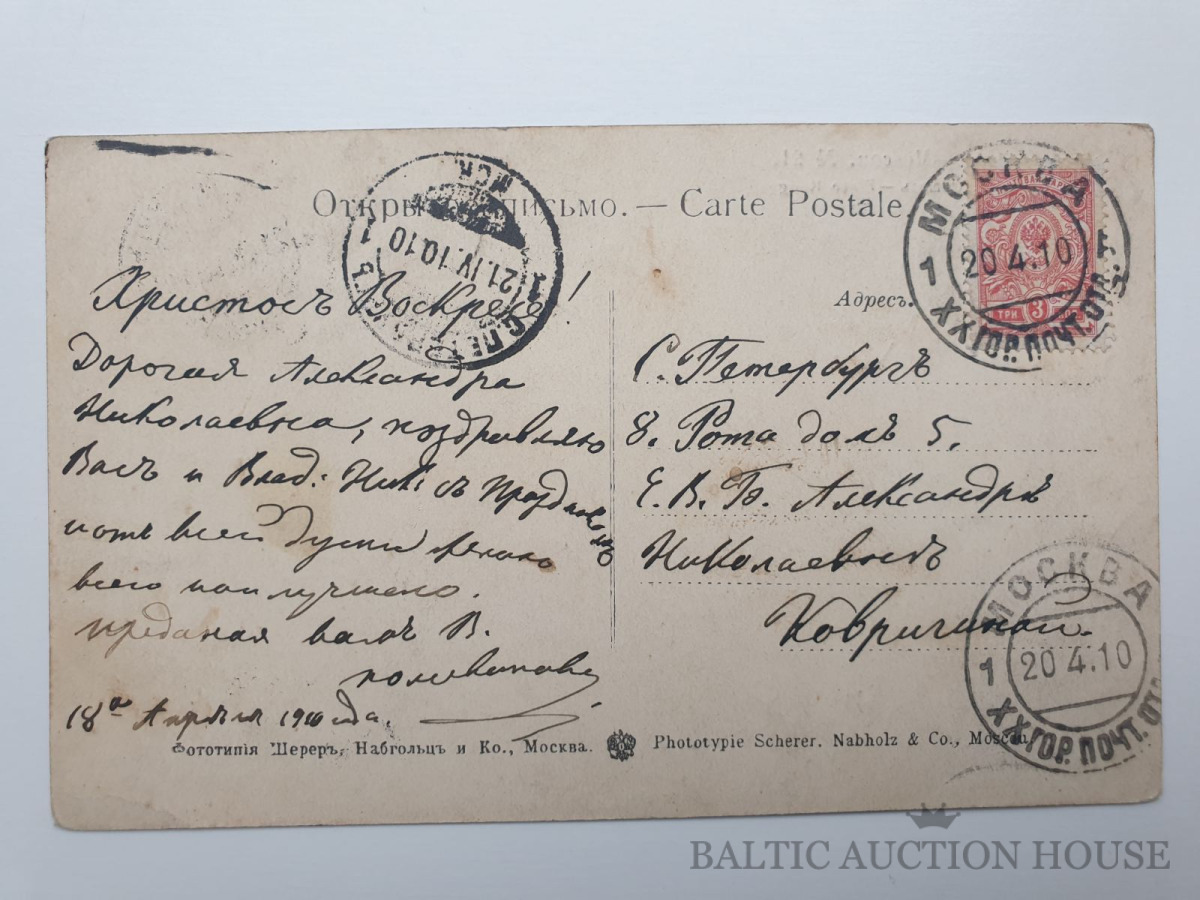 Открытое письмо. — Carte Postale.
МОСКВА
20 4.10
1 XX ГОР. ПОЧТ. ОТД.
ТРИ 3
С.ПЕТЕРБУРГЪ
21.IV.10.10
1 1
Адресъ.
Христосъ Воскресе!
Дорогая Александра
Николаевна, поздравляю
Васъ и Влад: Ник: съ Праздникомъ
отъ всей души желаю
всего наилучшаго.
преданая вамъ В.
18го Апреля 1910 года.
С. Петербургъ
8. Рота домъ 5.
Е. В. Б. Александрѣ
Николаевнѣ
Ковригиной.
МОСКВА
20 4.10
1 XX ГОР. ПОЧТ. ОТД.
Фототипія Шереръ, Набгольцъ и Ко., Москва. Phototypie Scherer, Nabholz & Co., Moscou.
BALTIC AUCTION HOUSE